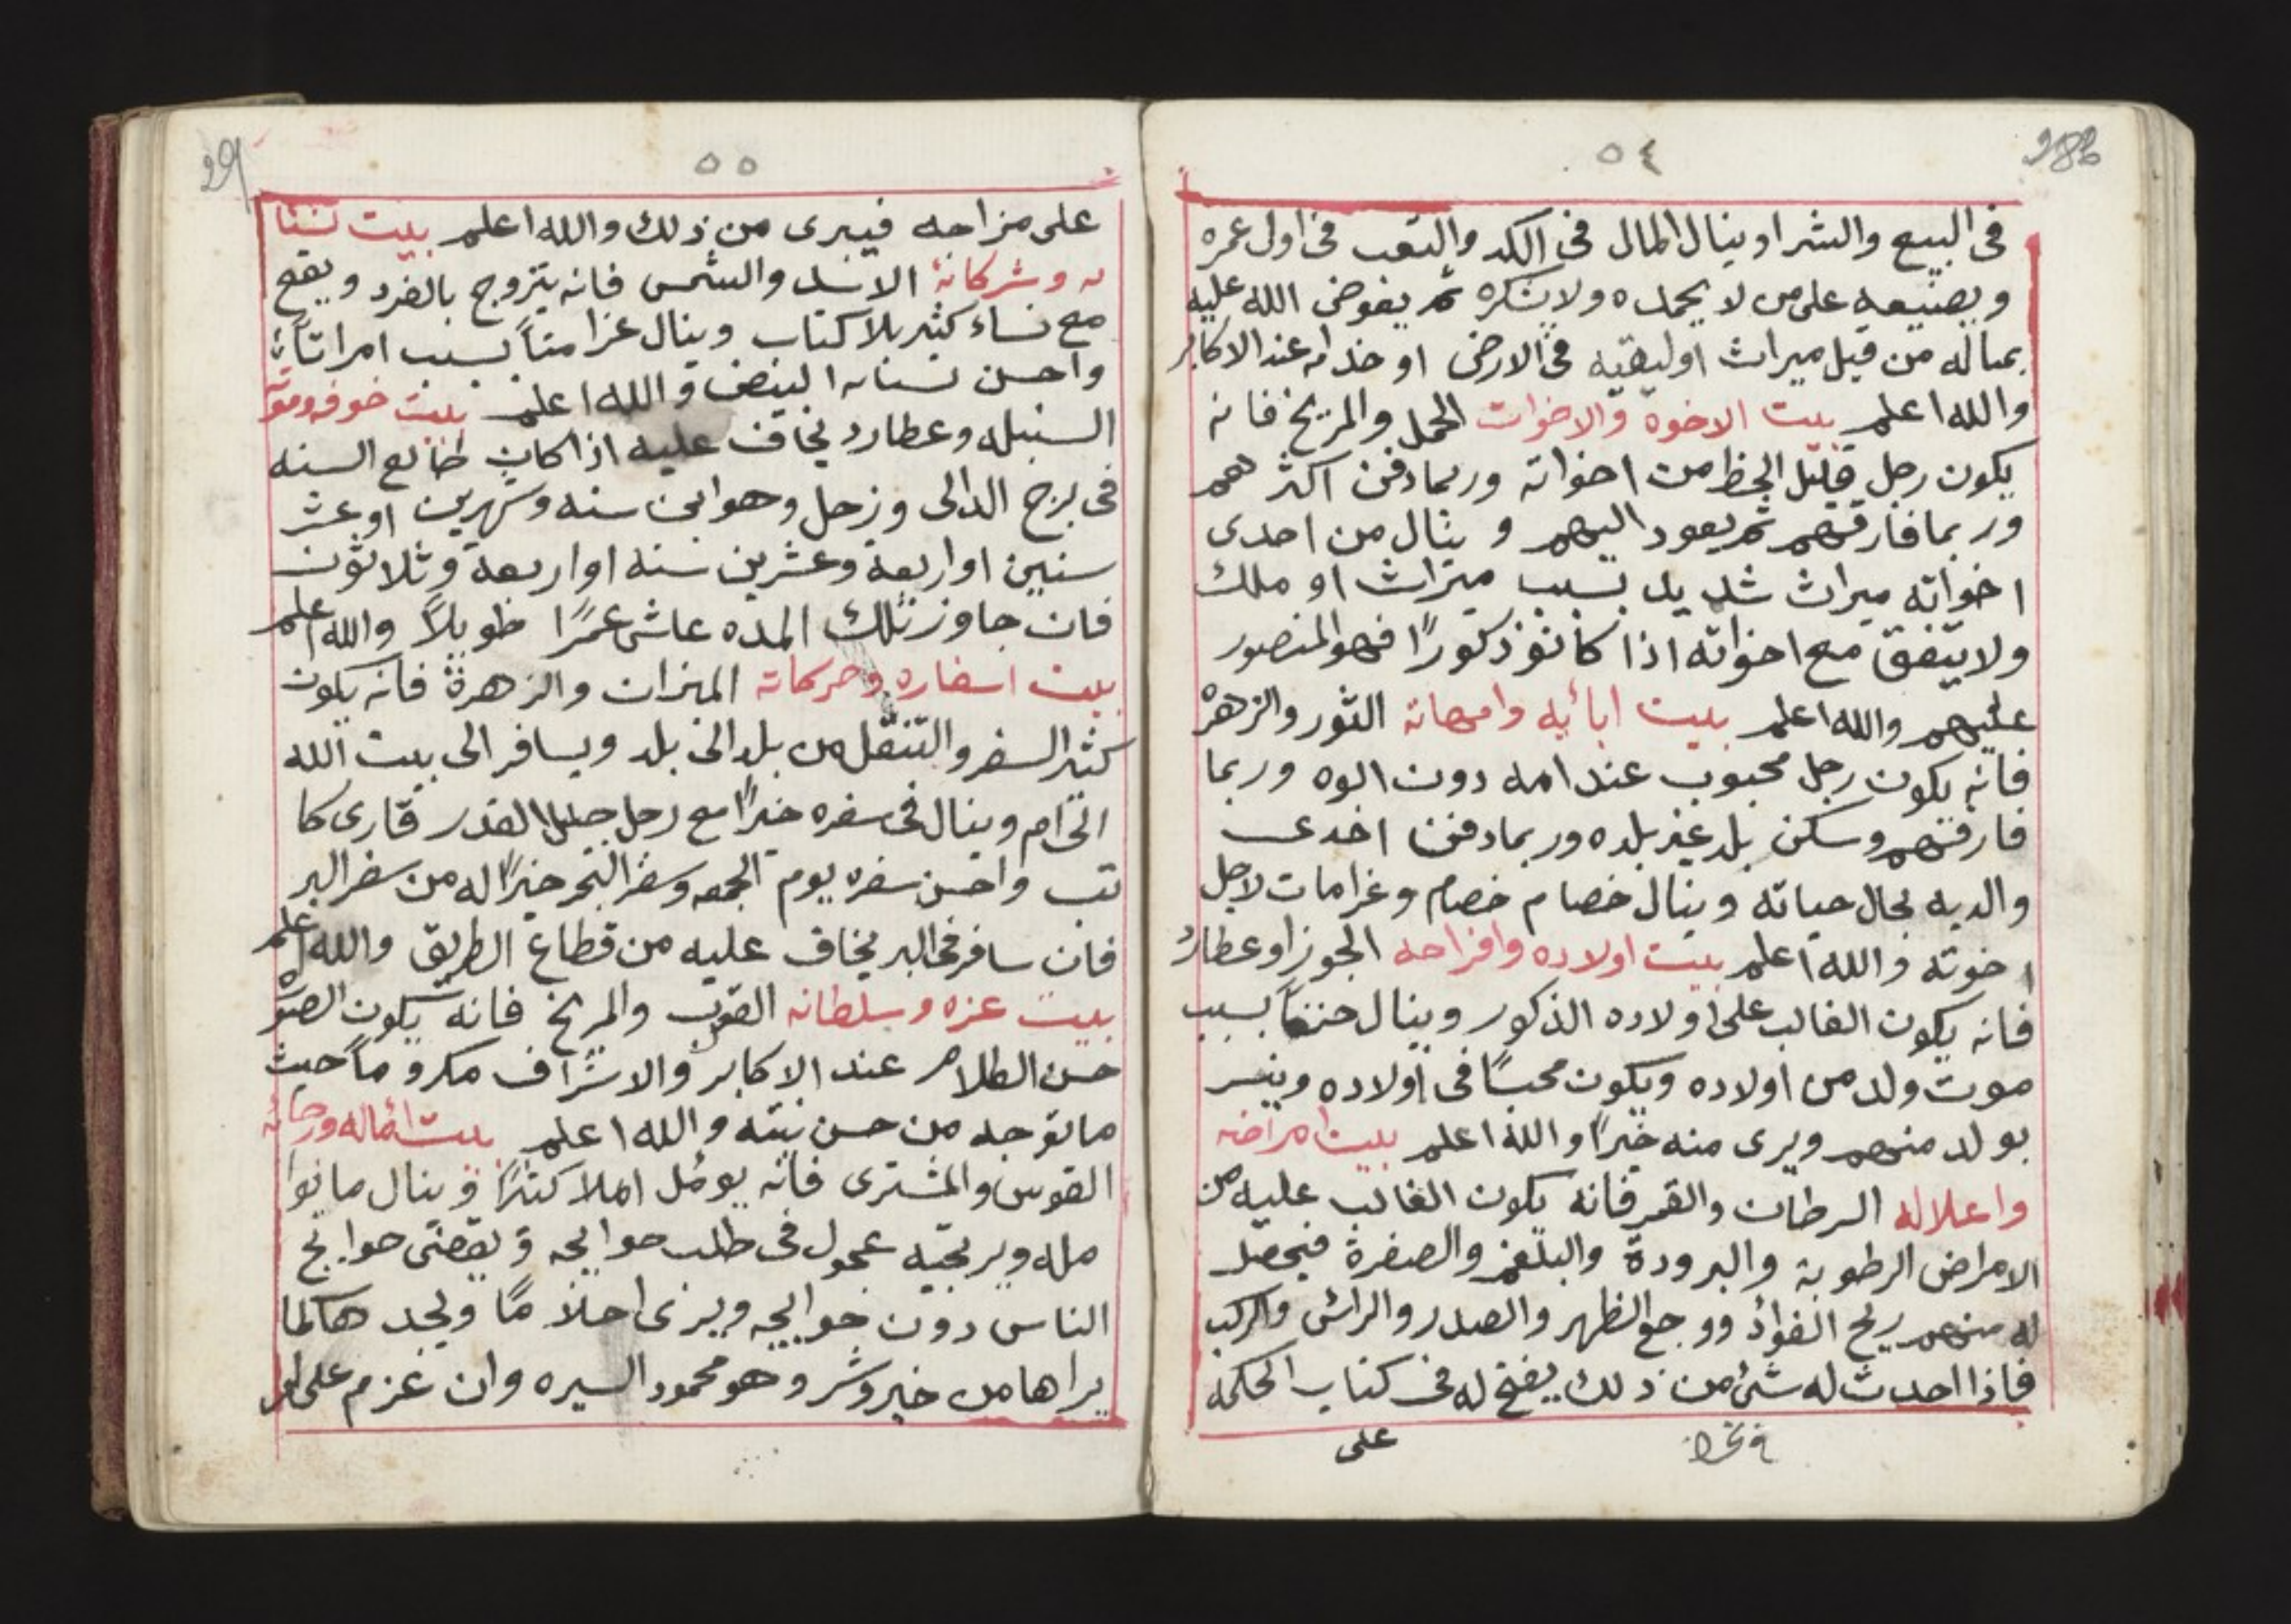 ٥٤
286
فى البيع والشرا وينال المال فى الكد والتعب فى اول عمره
ويصنيعه على من لا يحمده ولا يشكره ثم يفوض الله عليه
بماله من قبل ميراث اوليقيه فى الارض او خدامه عند الاكابر
والله اعلم بيت الاخوة والاخوات الحمل والمريخ فانه
يكون رجل قليل الحظ من اخواته وربما دفن اكثر هم
وربما فارقهم ثم يعود اليهم وينال من احدى
اخواته ميراث شديد بسبب ميراث او ملك
ولا يتفق مع اخواته اذا كانو ذكورًا فهو المنصور
عليهم والله اعلم بيت ابائيه وامهاته الثور والزهرة
فانه يكون رجل محبوب عند امه دون ابوه وربما
فارقهم وسكن بلد غير بلده وربما دفن احدى
والديه بحال حياته وينال خصام خصام وغرامات لاجل
اخوته والله اعلم بيت اولاده وافراحه الجوزا وعطارد
فانه يكون الغالب على اولاده الذكور وينال حزنًا بسبب
موت ولد من اولاده ويكون محبسًا فى اولاده وينسر
بولد منهم ويرى منه خيرًا والله اعلم بيت امراضه
واعلاله السرطان والقمر فانه يكون الغالب عليه من
الامراض الرطوبة والبرودة والبلغم والصفرة فيحصل
له منهم ريح الفوأد ووجع الظهر والصدر والرائس والركب
فاذا احدث له شئ من ذلك يفتح له فى كتاب الحكمه
على
٥٥
29
على مزاجه فيبرى من ذلك والله اعلم بيت نسا
ىه وشركاتة الاسد والشمس فانه يتزوج بالفرد ويقع
مع نساء كثير بلا كتاب وينال غرامتاً بسبب امراتاً
واحسن نسائه البيض والله اعلم بيت خوفه وموته
السنبله وعطارد يخاف عليه اذا كان طالع السنه
فى برج الدالى وزحل وهو ابن سنه وشهرين او عشر
سنين او اربعة وعشرين سنه او اربعة وثلاثون
فان جاوز تلك المده عاش عمرًا طويلاً والله اعلم
بيت اسفاره وحركاته الميزان والزهرة فانه يكون
كثير السفر والتنقل من بلد الى بلد ويسافر الى بيت الله
الحرام وينال فى سفره خيرًا مع رجل جليل القدر قارى كا
تب واحسن سفره يوم الجمعه وسفر البحر خيرًا له من سفر البر
فان سافر فى البر يخاف عليه من قطاع الطريق والله اعلم
بيت عزه وسلطانه العقرب والمريخ فانه يكون الصو
حسن الطلاهر عند الاكابر والاشراف مكروماً حيث
ما توجه من حسن نيته والله اعلم بيت اماله ورجائه
القوس والمشترى فانه يومل املا كثيرًا وينال ما نوا
مله ويرتجيه عجول فى طلب حوايجه ويقضى حوايج
الناس دون حوايجه ويرى احلاماً ويجد هاكلما
يراها من خير وشر وهو محمود السيره وان عزم على امر